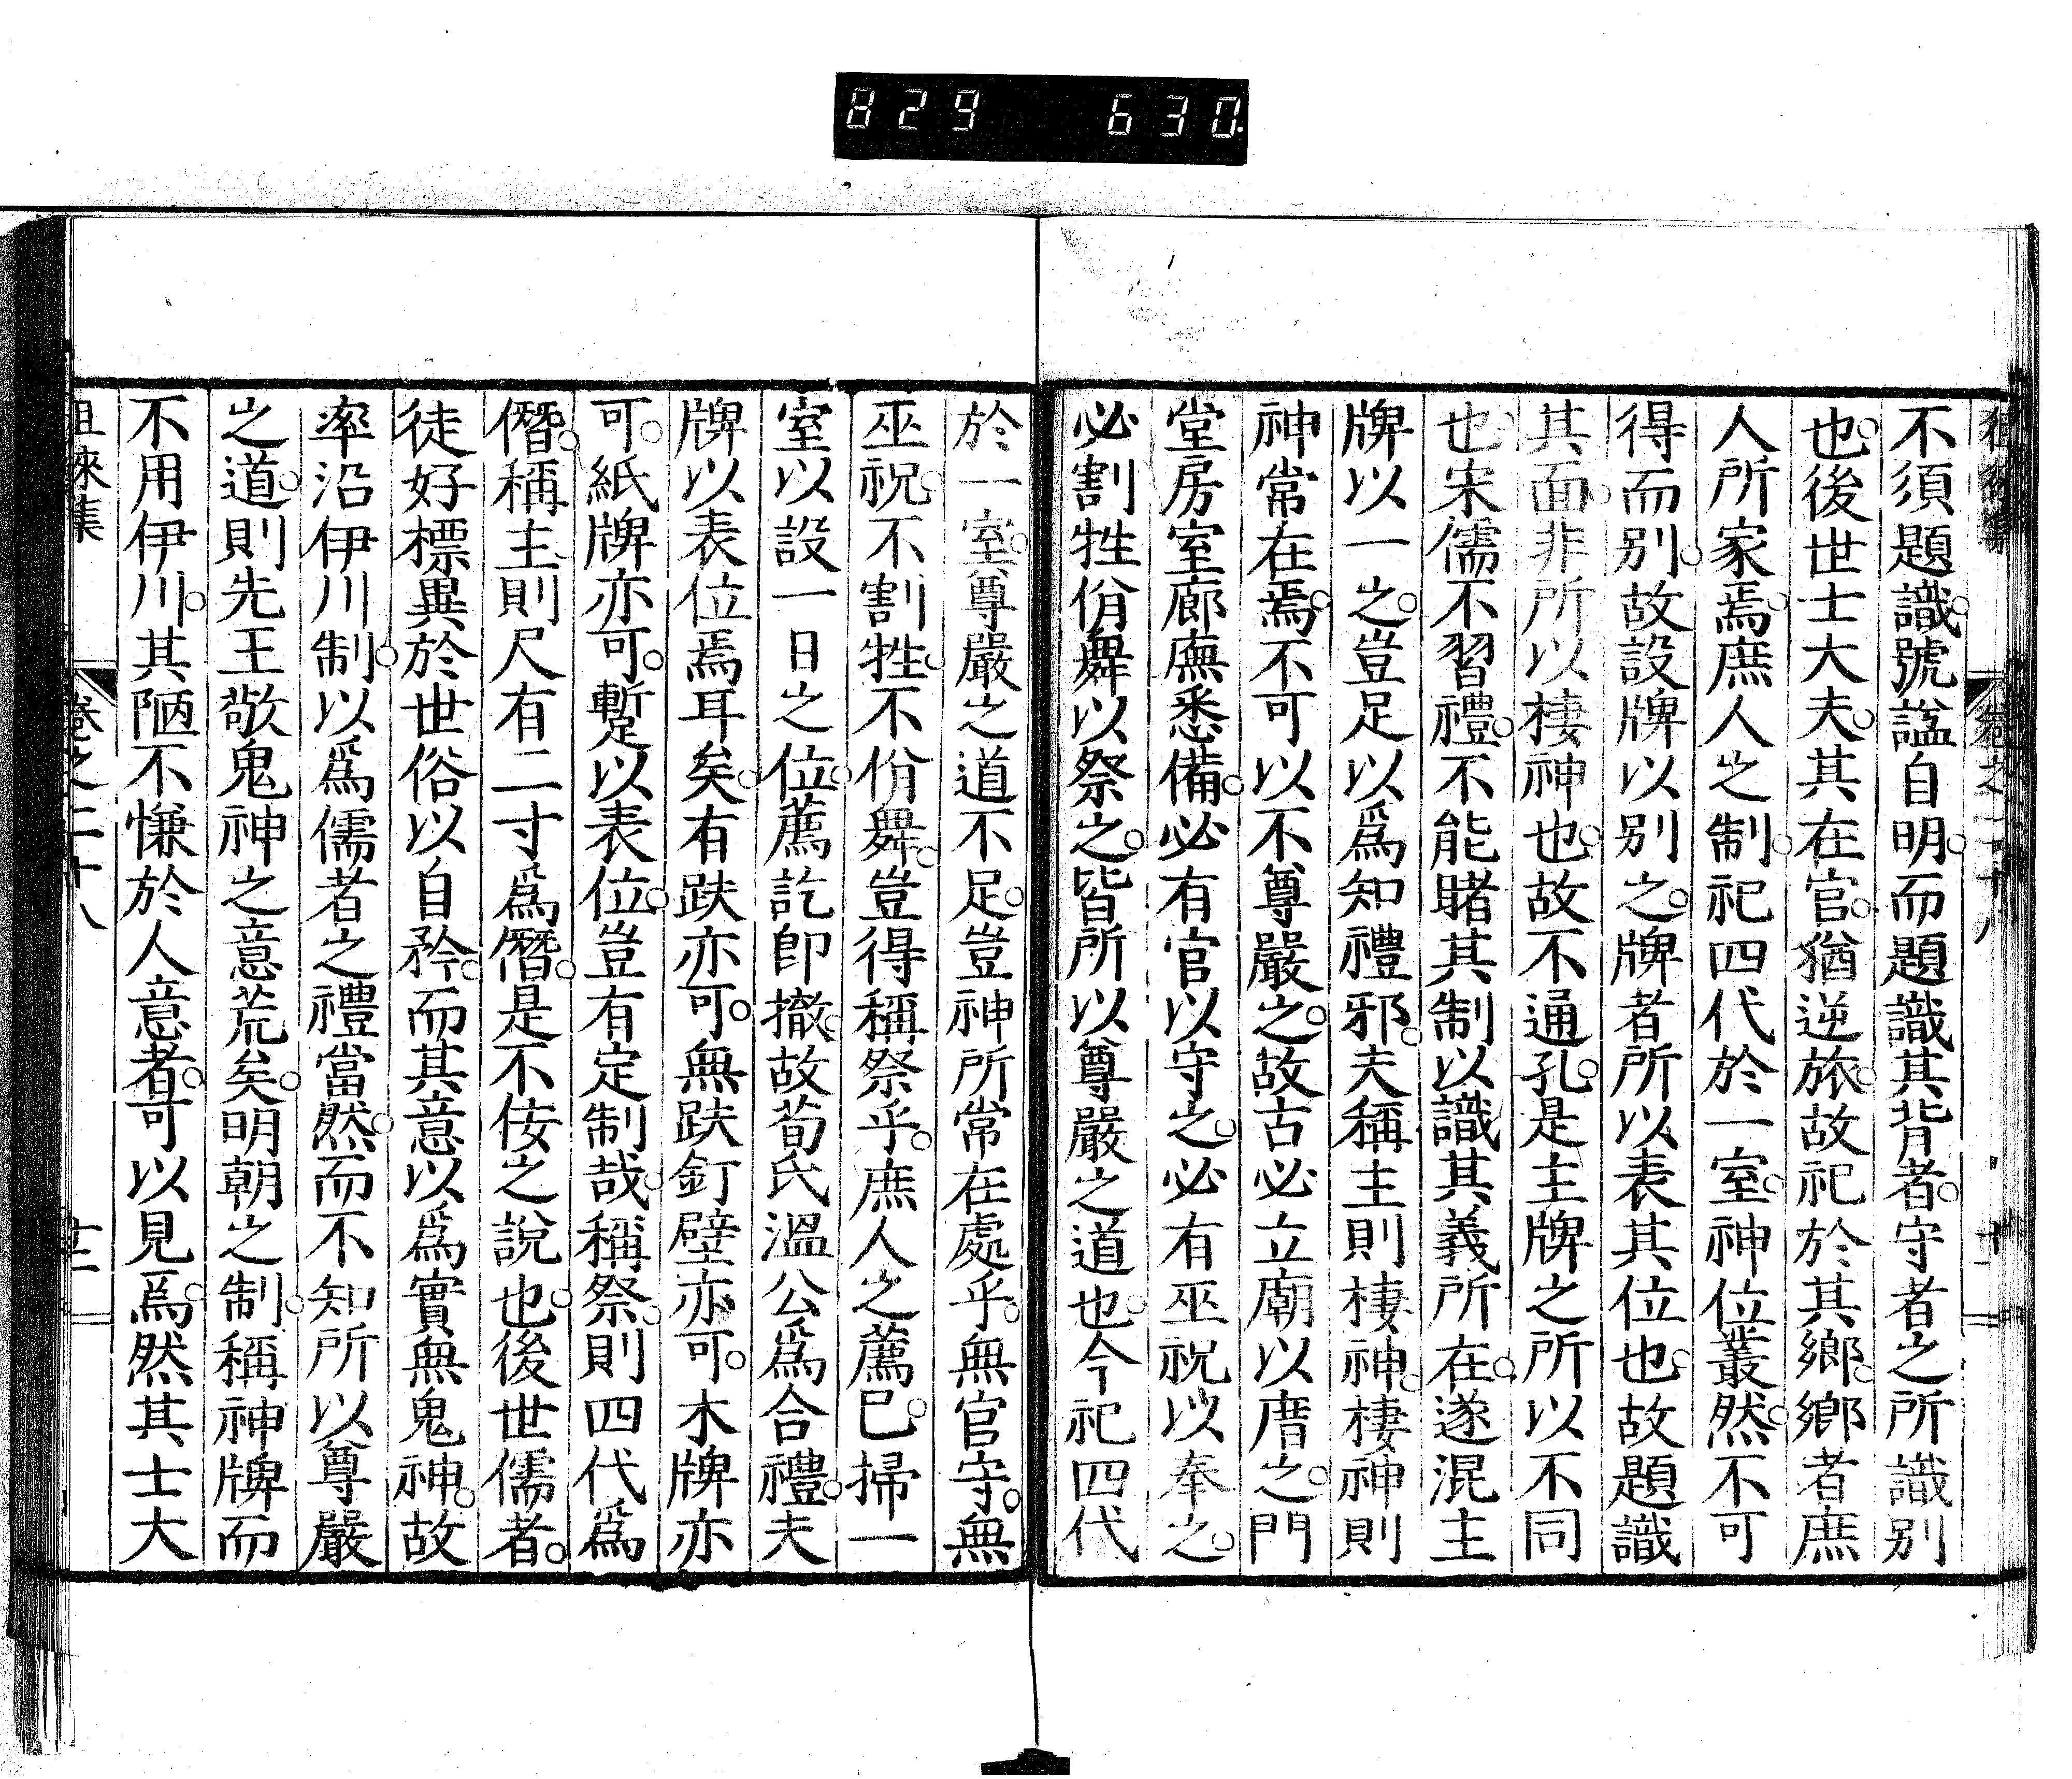 829 630.
不須題識。號諡自明。而題識其背者。守者之所識別
也。後世士大夫。其在官。猶逆旅。故祀於其鄉。鄉者庶
人所家焉。庶人之制。祀四代於一室。神位叢然。不可
得而別。故設牌以別之。牌者所以表其位也。故題識
其面。非所以棲神也。故不通孔。是主牌之所以不同
也。宋儒不習禮。不能睹其制以識其義所在。遂混主
牌以一之。豈足以爲知禮邪。夫稱主則棲神。棲神則
神常在焉。不可以不尊嚴之。故古必立廟以厝之。門
堂房室廊廡悉備。必有官以守之。必有巫祝以奉之。
必割牲佾舞以祭之。皆所以尊嚴之道也。今祀四代
於一室。尊嚴之道不足。豈神所常在處乎。無官守。無
巫祝。不割牲。不佾舞。豈得稱祭乎。庶人之薦已。掃一
室以設一日之位。薦訖卽撤。故荀氏溫公爲合禮。夫
牌以表位焉耳矣。有趺亦可。無趺釘壁亦可。木牌亦
可。紙牌亦可。蹔以表位。豈有定制哉。稱祭。則四代爲
僭。稱主則尺有二寸爲僭。是不佞之說也。後世儒者。
徒好標異於世俗以自矜。而其意以爲實無鬼神。故
率沿伊川制。以爲儒者之禮當然。而不知所以尊嚴
之道。則先王敬鬼神之意荒矣。明朝之制。稱神牌而
不用伊川。其陋不慊於人意者。可以見焉。然其士大
徂徠集 卷之二十八 十二